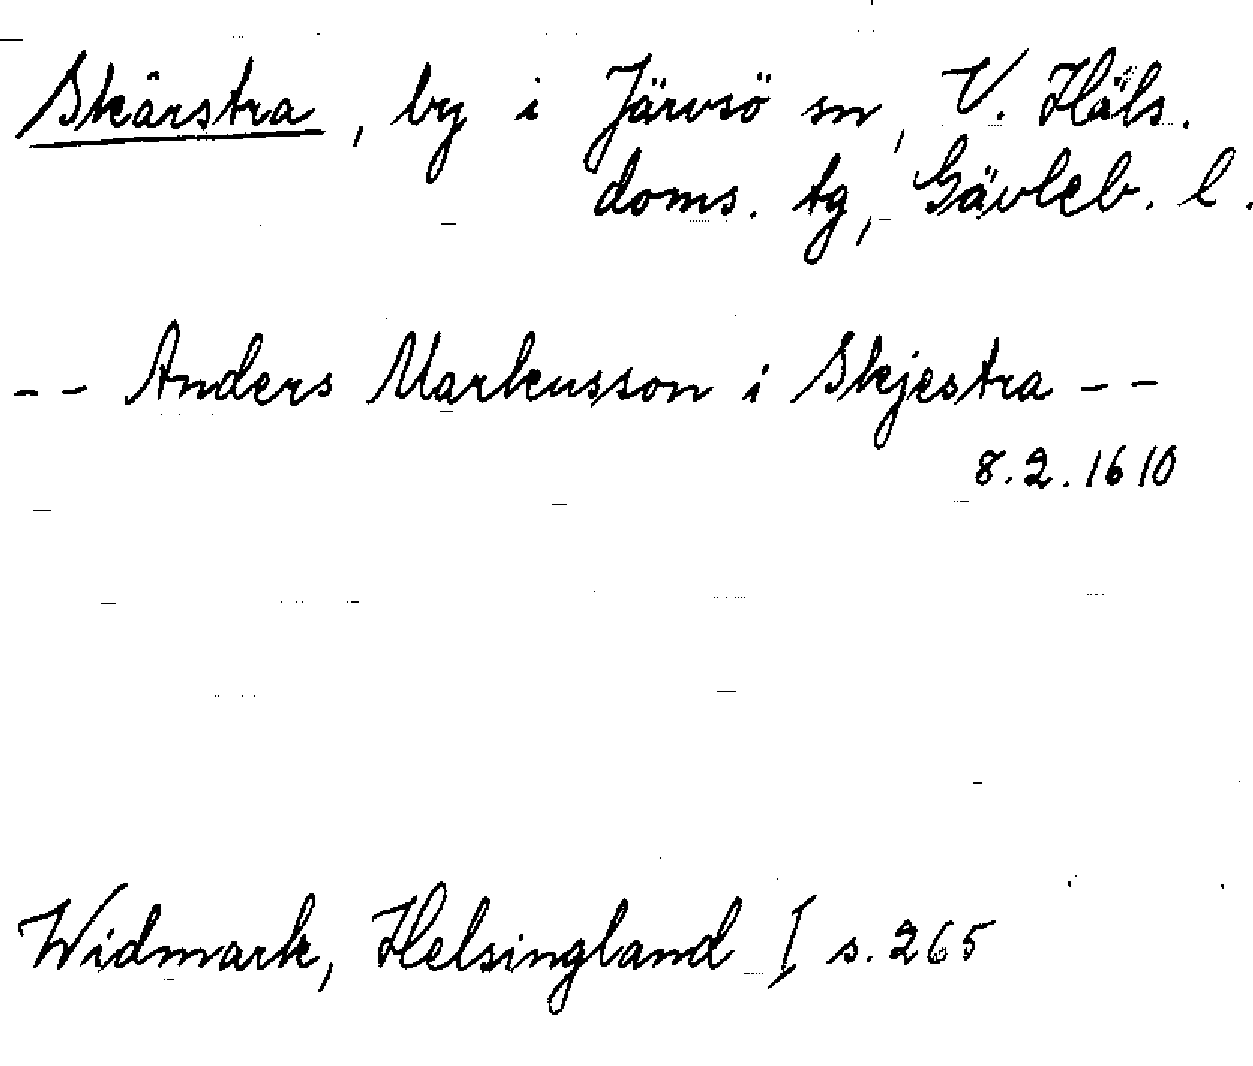 Skärstra, by i Järvsö sn, V. Häls.
doms. tg, Gävleb. l.
-- Anders Markusson i Skjestra --
8.2.1610
Widmark, Helsingland I s. 265